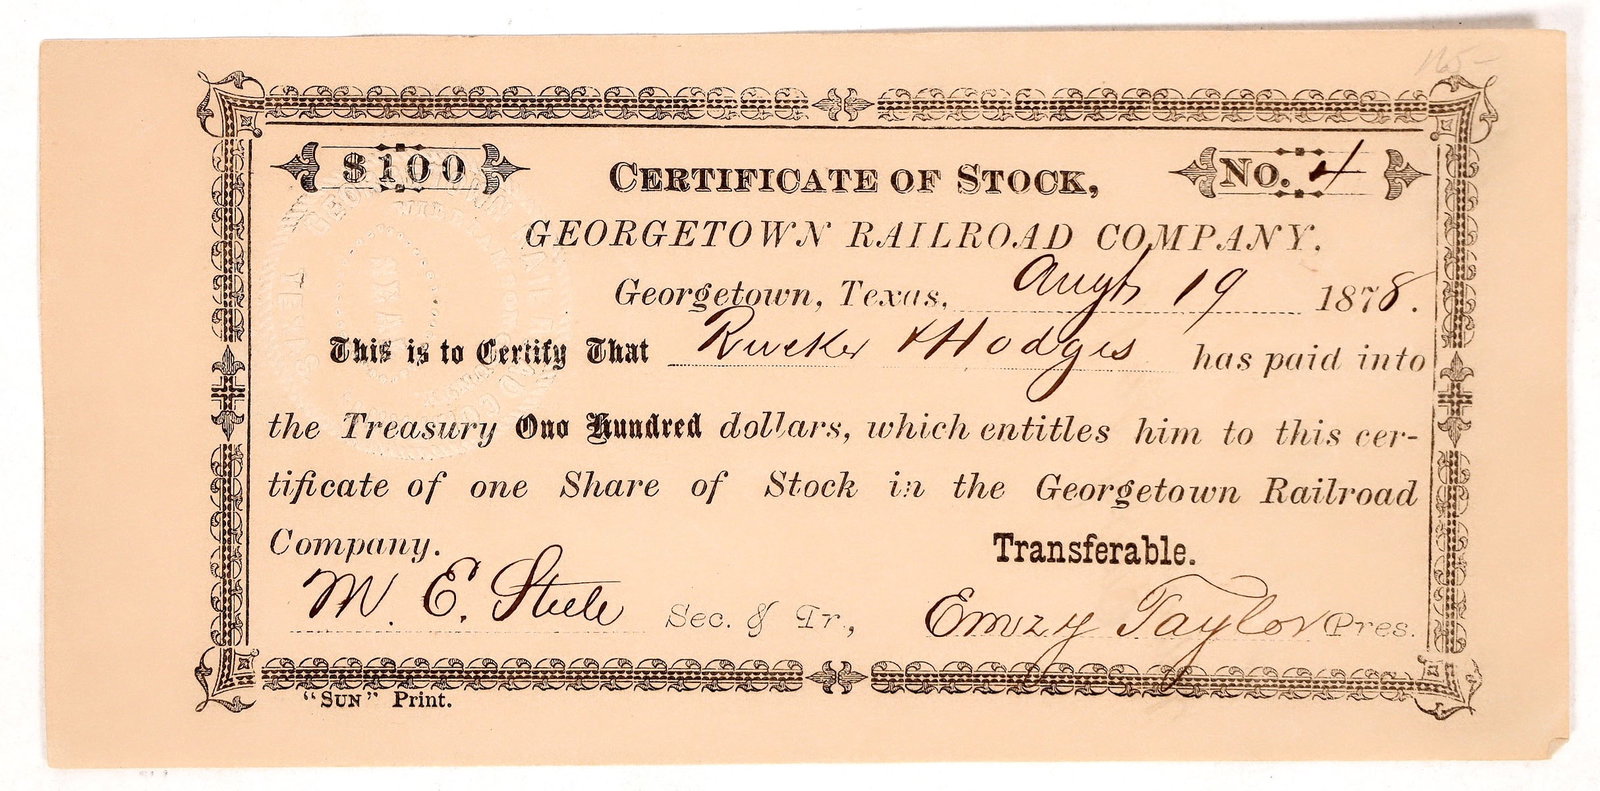 165-
$100
CERTIFICATE OF STOCK,
No. 4
GEORGETOWN RAILROAD COMPANY.
Georgetown, Texas, Augt 19 1878.
This is to Certify That Rucker & Hodges has paid into
the Treasury One Hundred dollars, which entitles him to this cer-
tificate of one Share of Stock in the Georgetown Railroad
Company.
Transferable.
M. E. Steele Sec. & Tr,
Emzy Taylor Pres.
"SUN" Print.